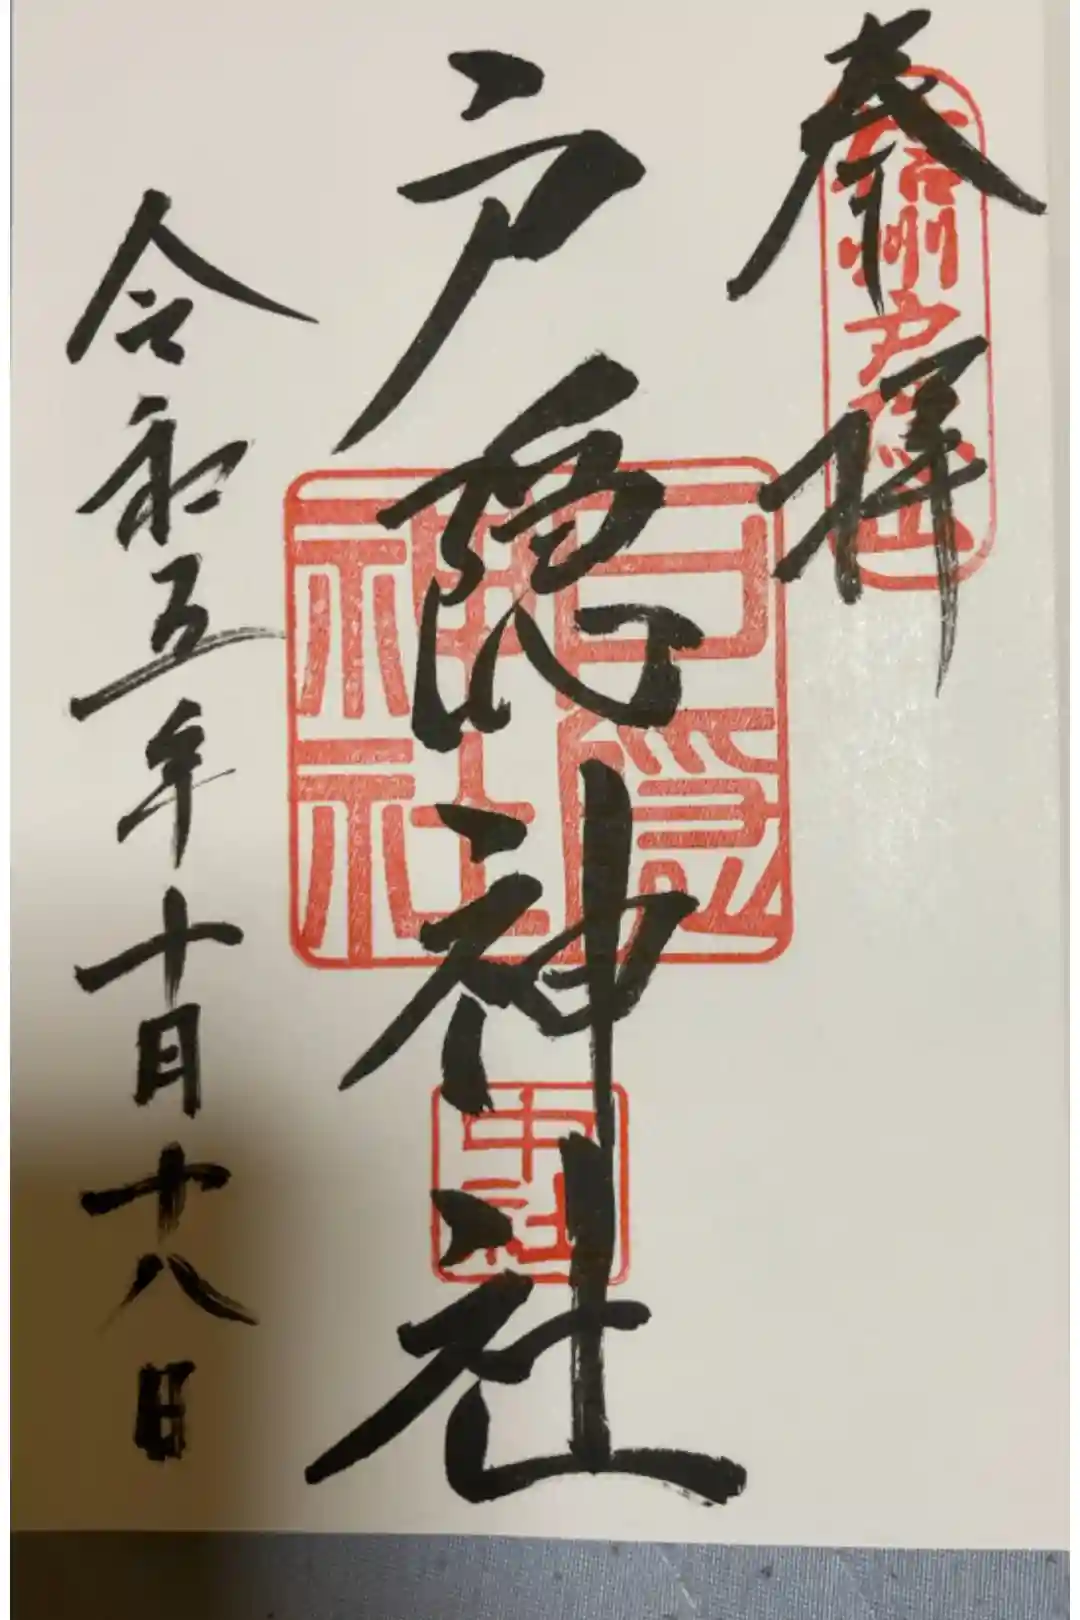 奉拝
信州戸隠山
戸隠神社
戸隠
神社
中社
令和五年十月十八日